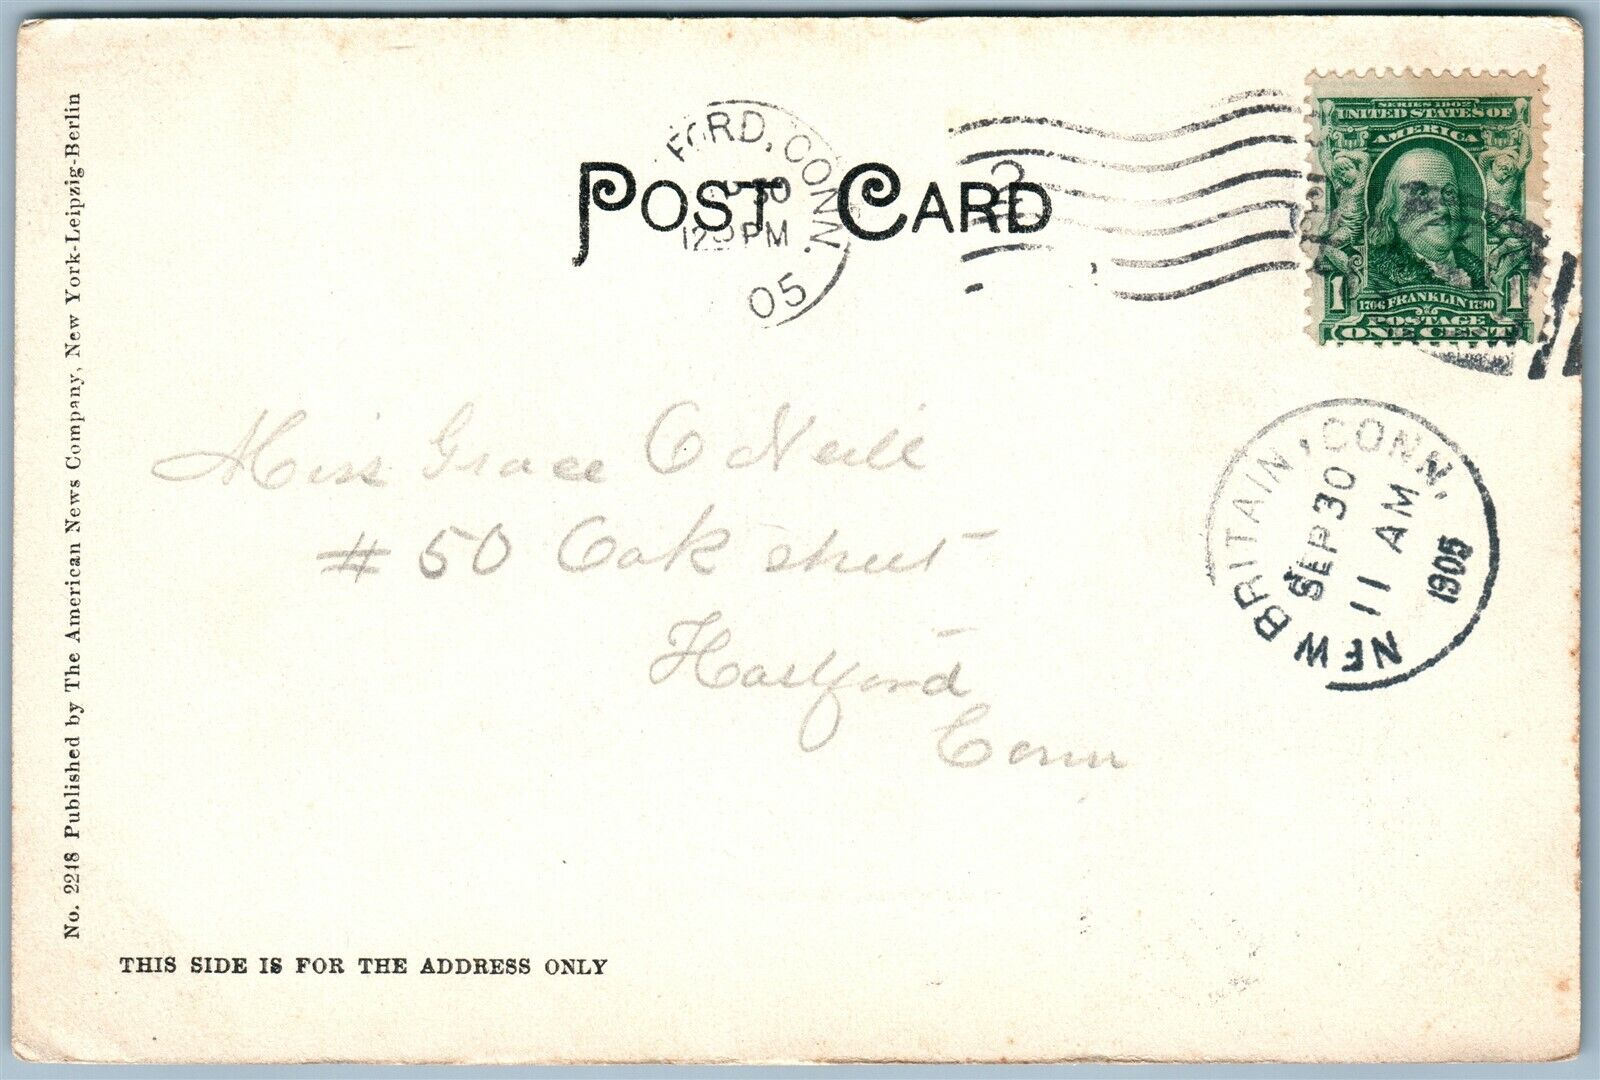 No. 2248 Published by The American News Company, New York-Leipzig-Berlin
POST CARD
FORD, CONN.
30
PM
05
SERIES 1902
UNITED STATES OF
AMERICA
1 1706 FRANKLIN 1790 1
POSTAGE
ONE CENT
Miss Grace O Neill
# 50 Oak street
Hartford
Conn
NEW BRITAIN, CONN.
SEP 30
11 AM
1905
THIS SIDE IS FOR THE ADDRESS ONLY